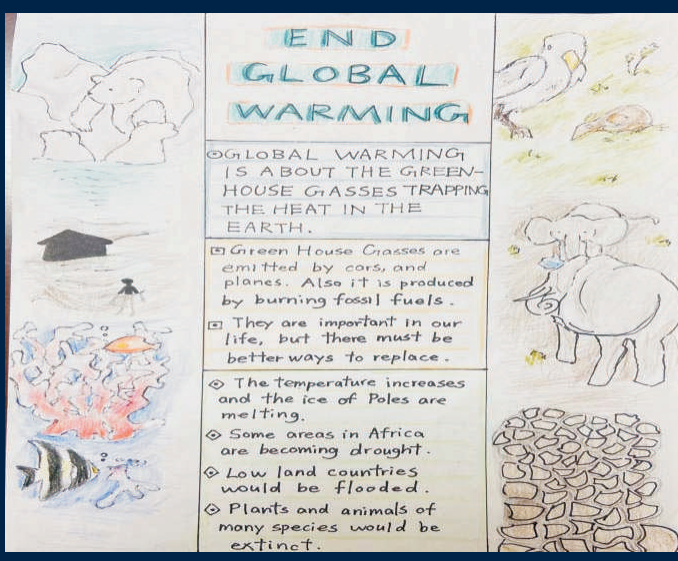 END
GLOBAL
WARMING
GLOBAL WARMING
IS ABOUT THE GREEN-
HOUSE GASSES TRAPPING
THE HEAT IN THE
EARTH.
Green House Gasses are
emitted by cars, and
planes. Also it is produced
by burning fossil fuels.
They are important in our
life, but there must be
better ways to replace.
The temperature increases
and the ice of Poles are
melting.
Some areas in Africa
are becoming drought.
Low land countries
would be flooded.
Plants and animals of
many species would be
extinct.